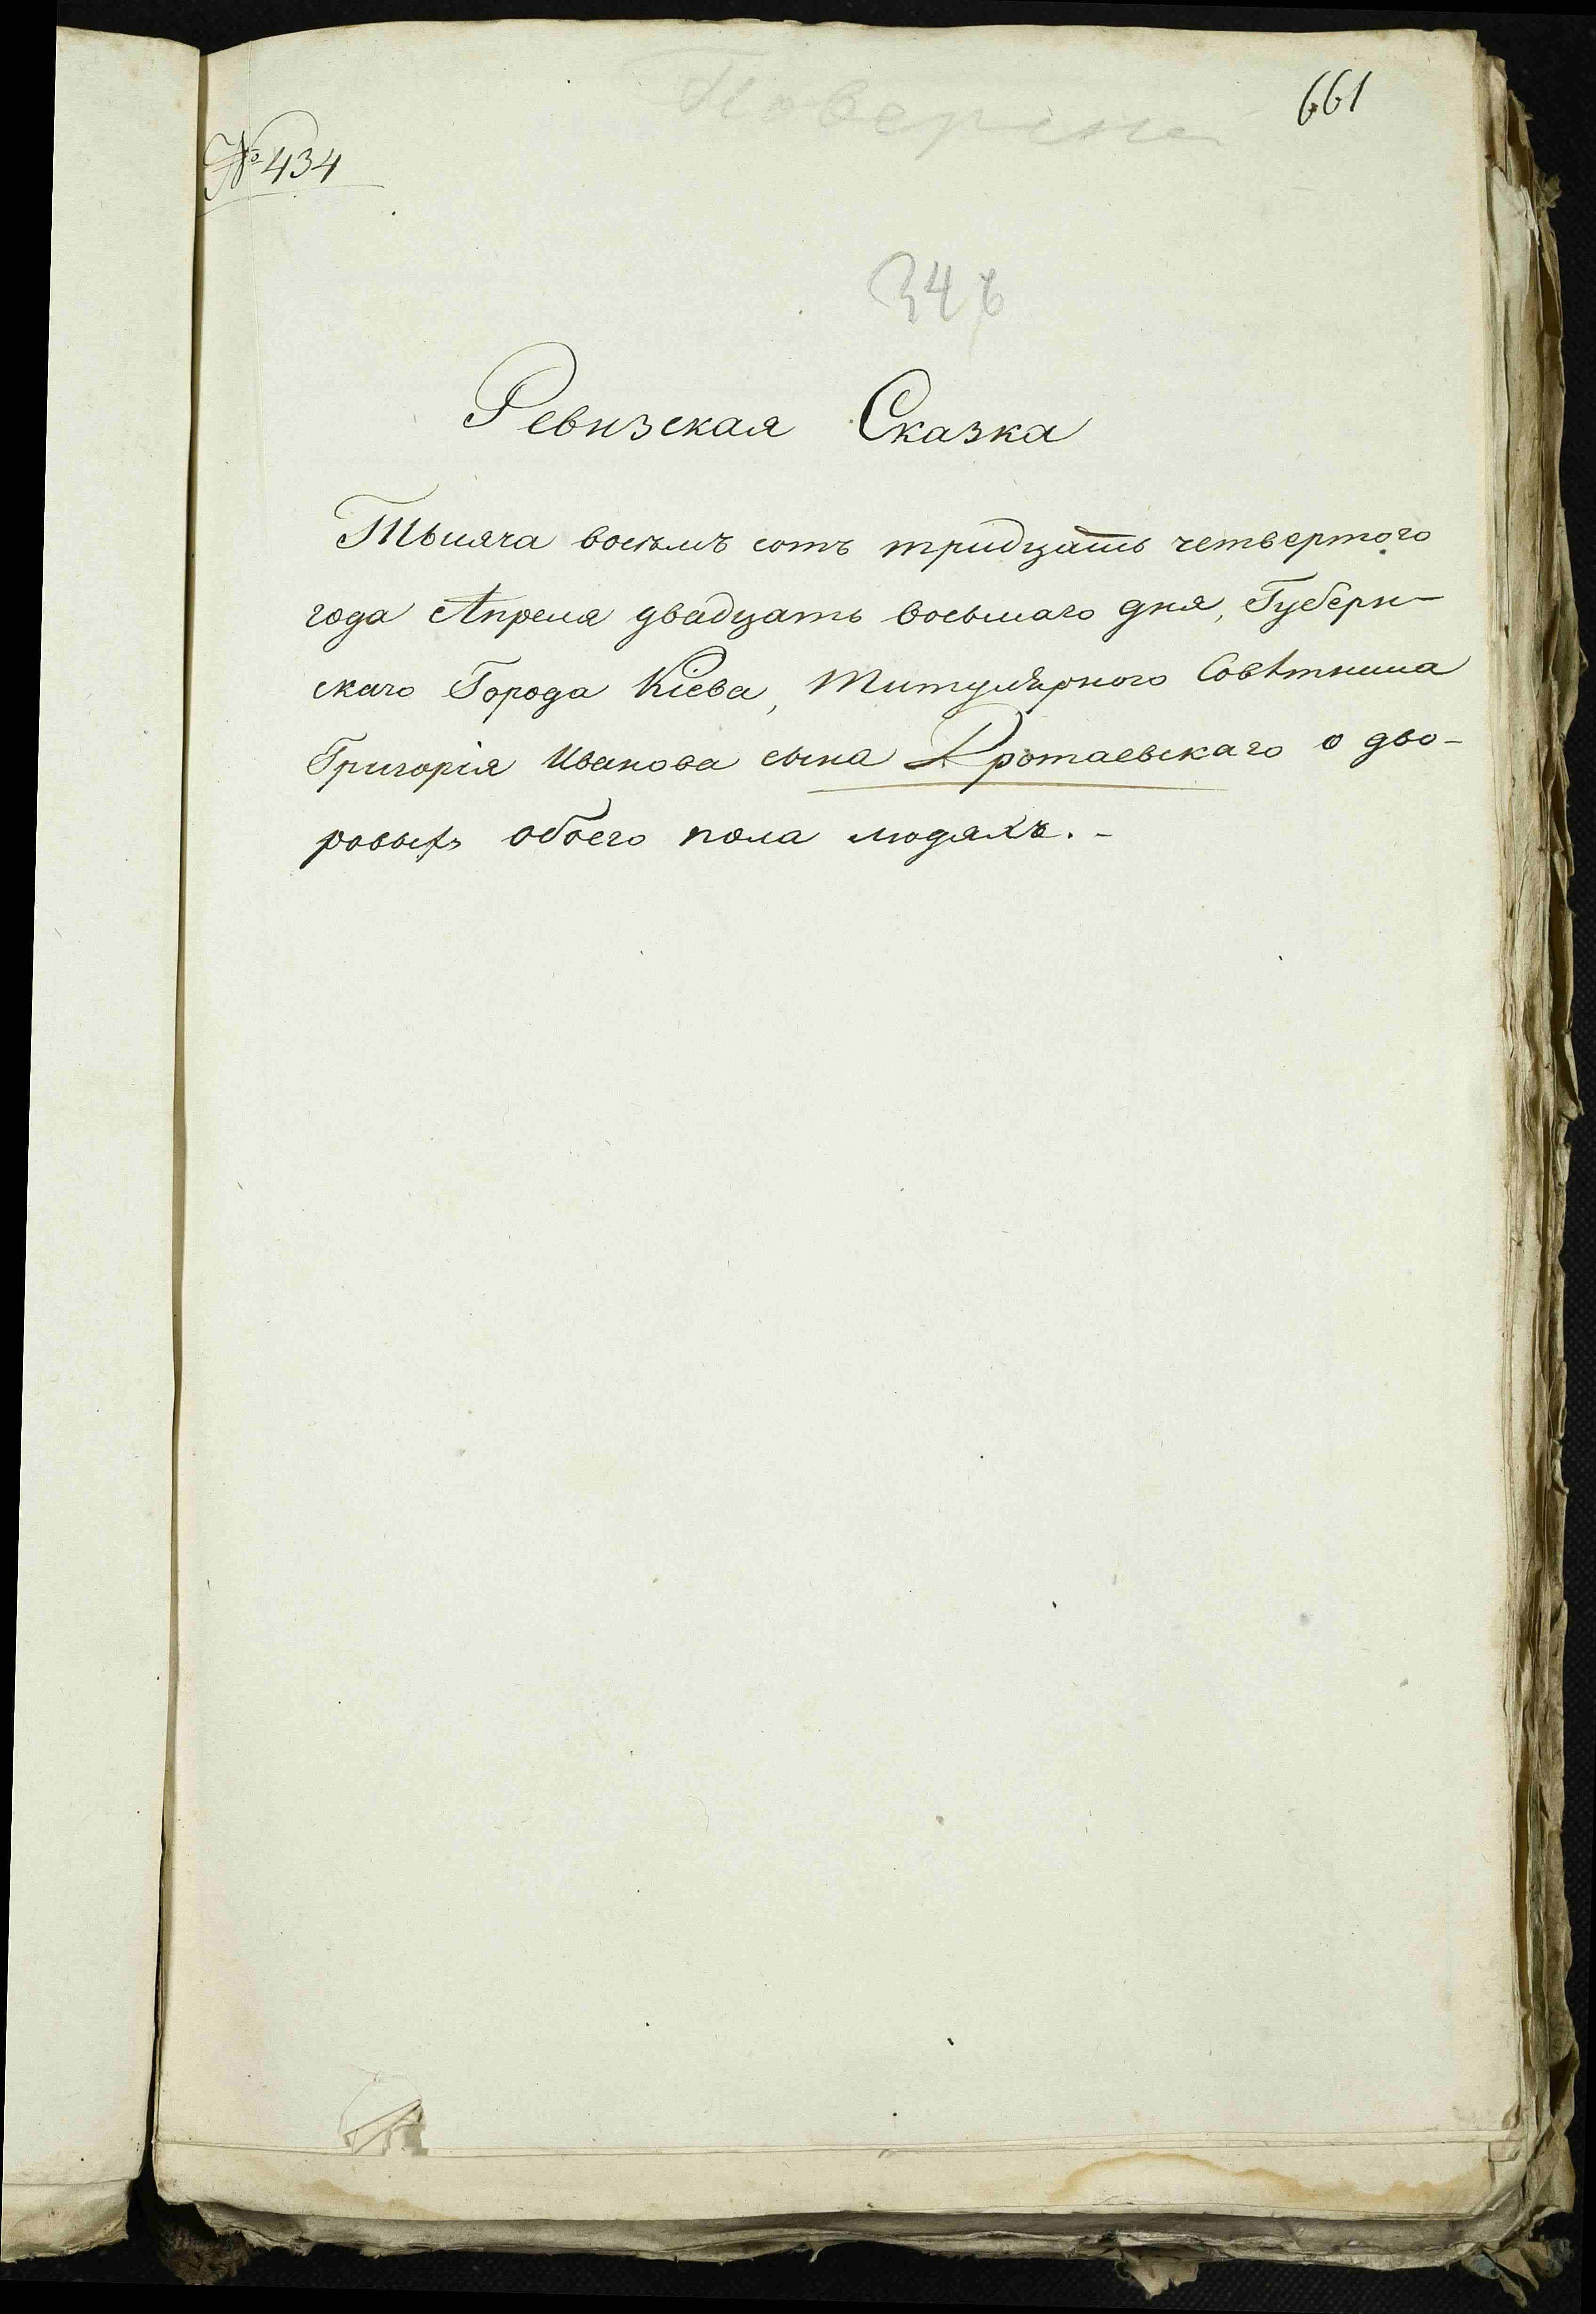 661
№ 434
346
Ревизская Сказка
Тысяча восемь сотъ тридцать четвертого
года Апреля двадцать восьмаго дня, Губерн-
скаго Города Кіева, Титулярного Совѣтника
Григорія Иванова сына Кротаевскаго о дво-
ровыхъ обоего пола людяхъ. -